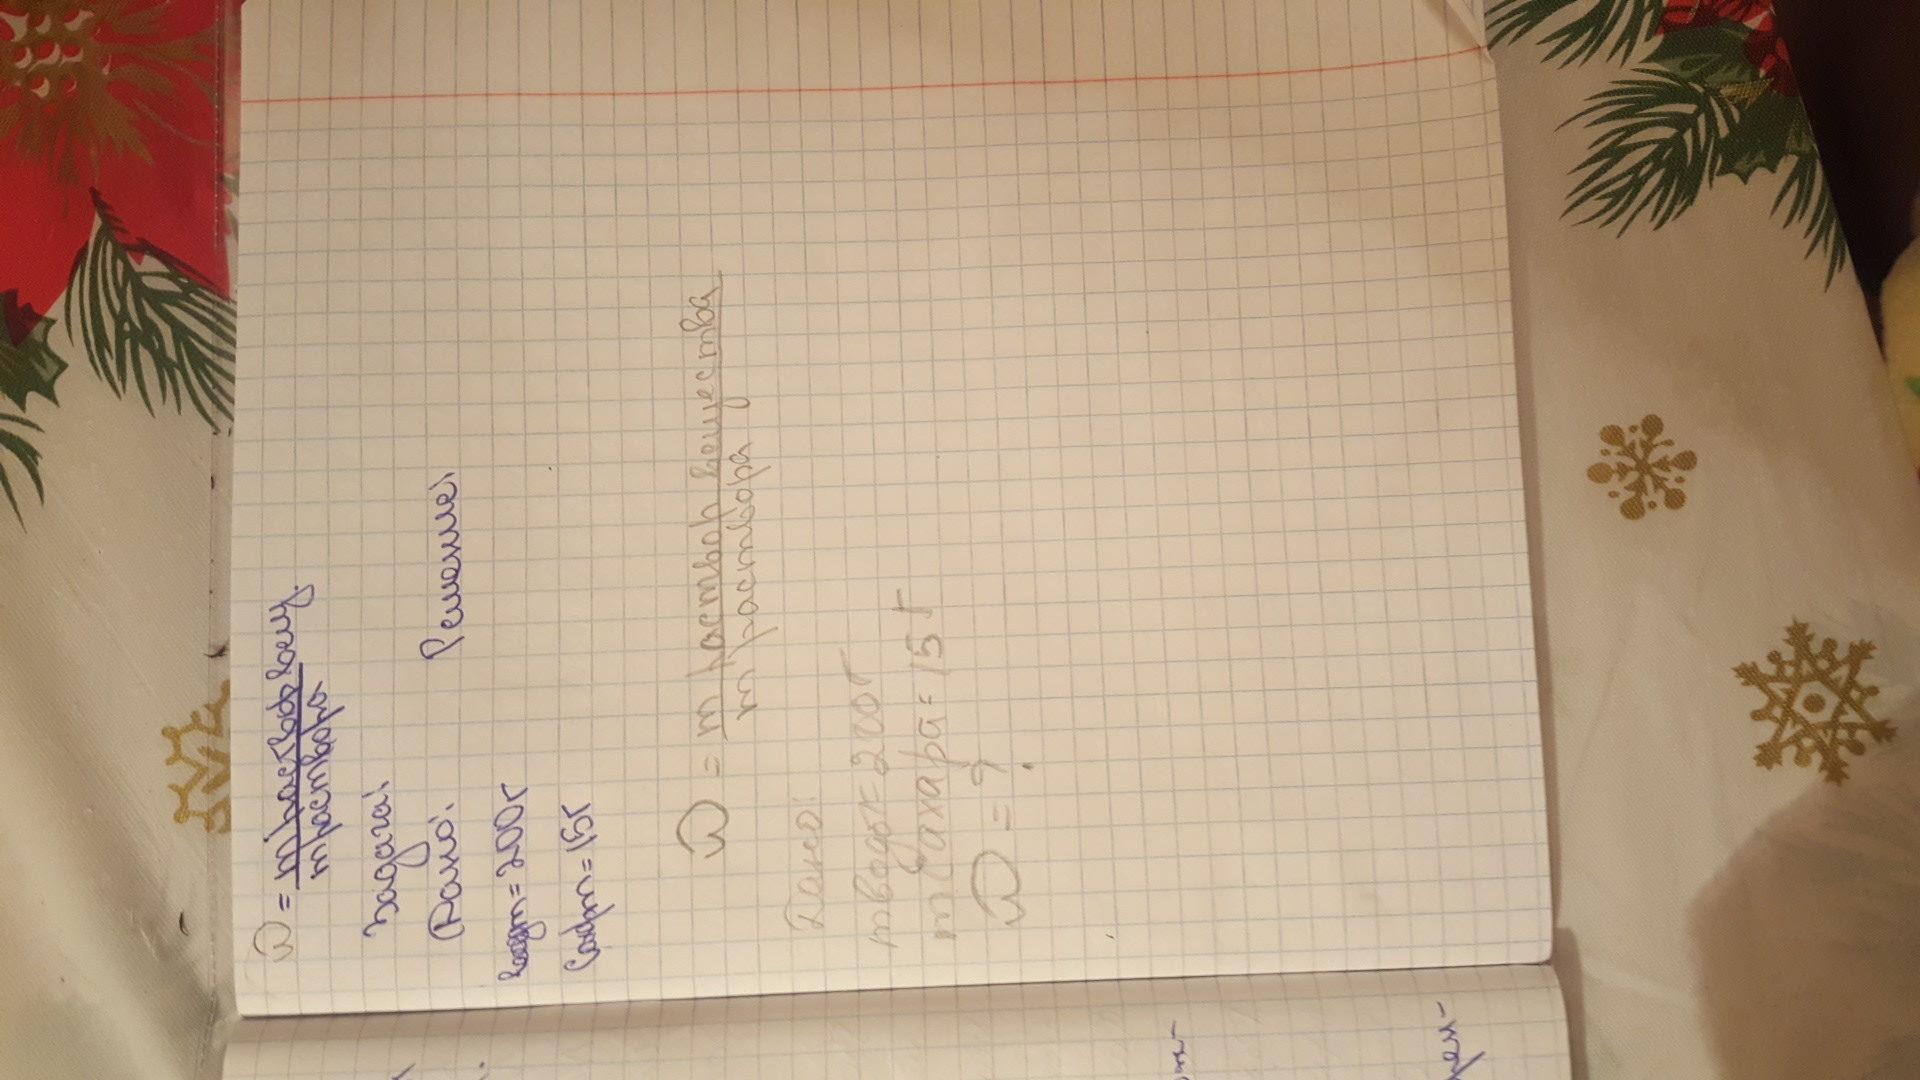 ω = m раствор вещ.
m раствора
Задача:
Дано:
Решение:
m = 200г
m = 15г
ω = m раствор вещества
m раствора
Дано:
m воды = 200г
m сахара = 15г
ω = ?